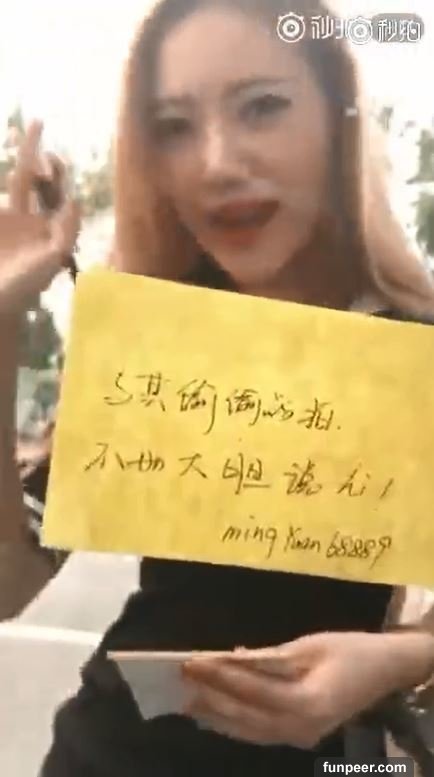 秒拍 秒拍
与其偷偷的拍.
不如大胆说 hi!
mingYuan68889
funpeer.com